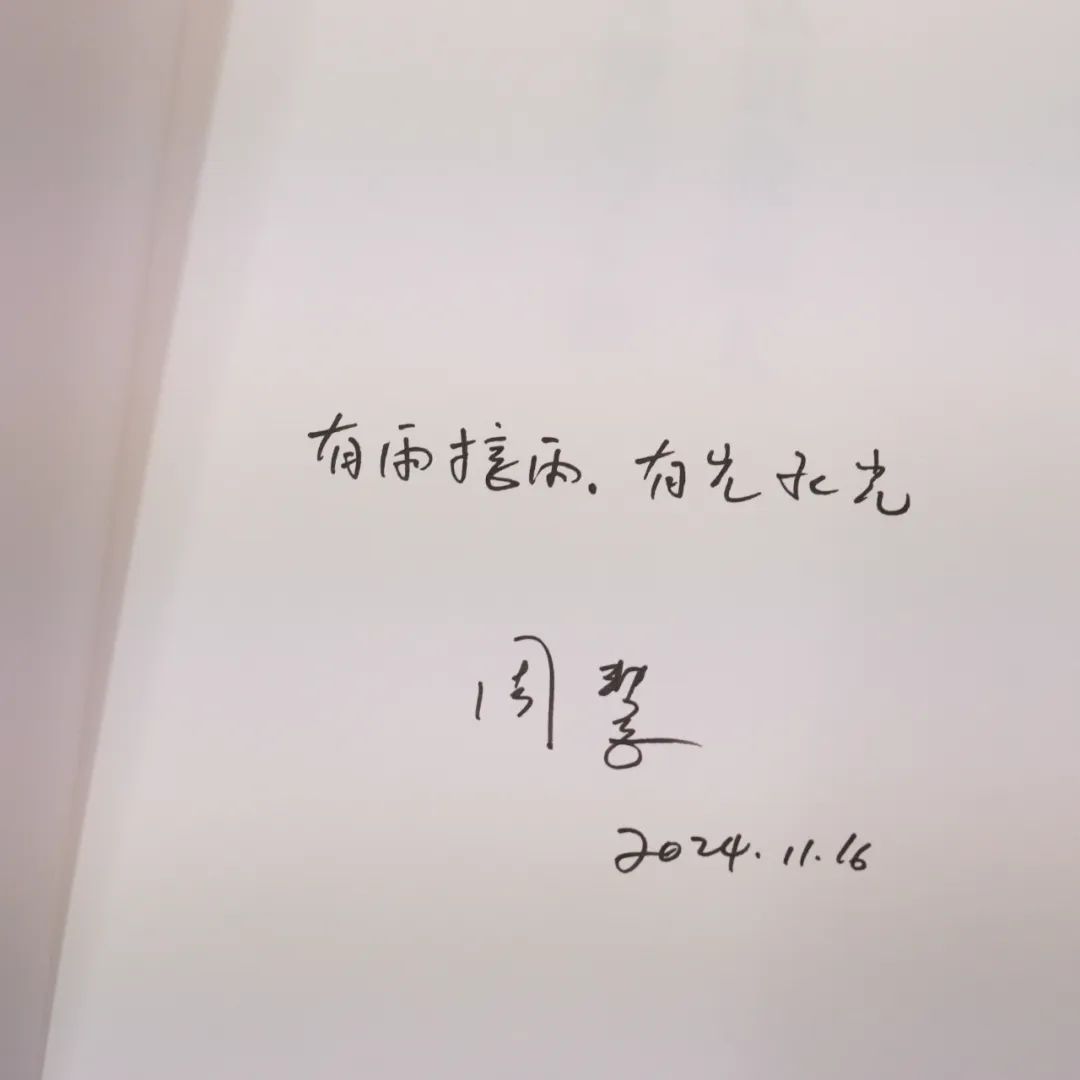 有雨接雨.有光水光
周誓
2024.11.16